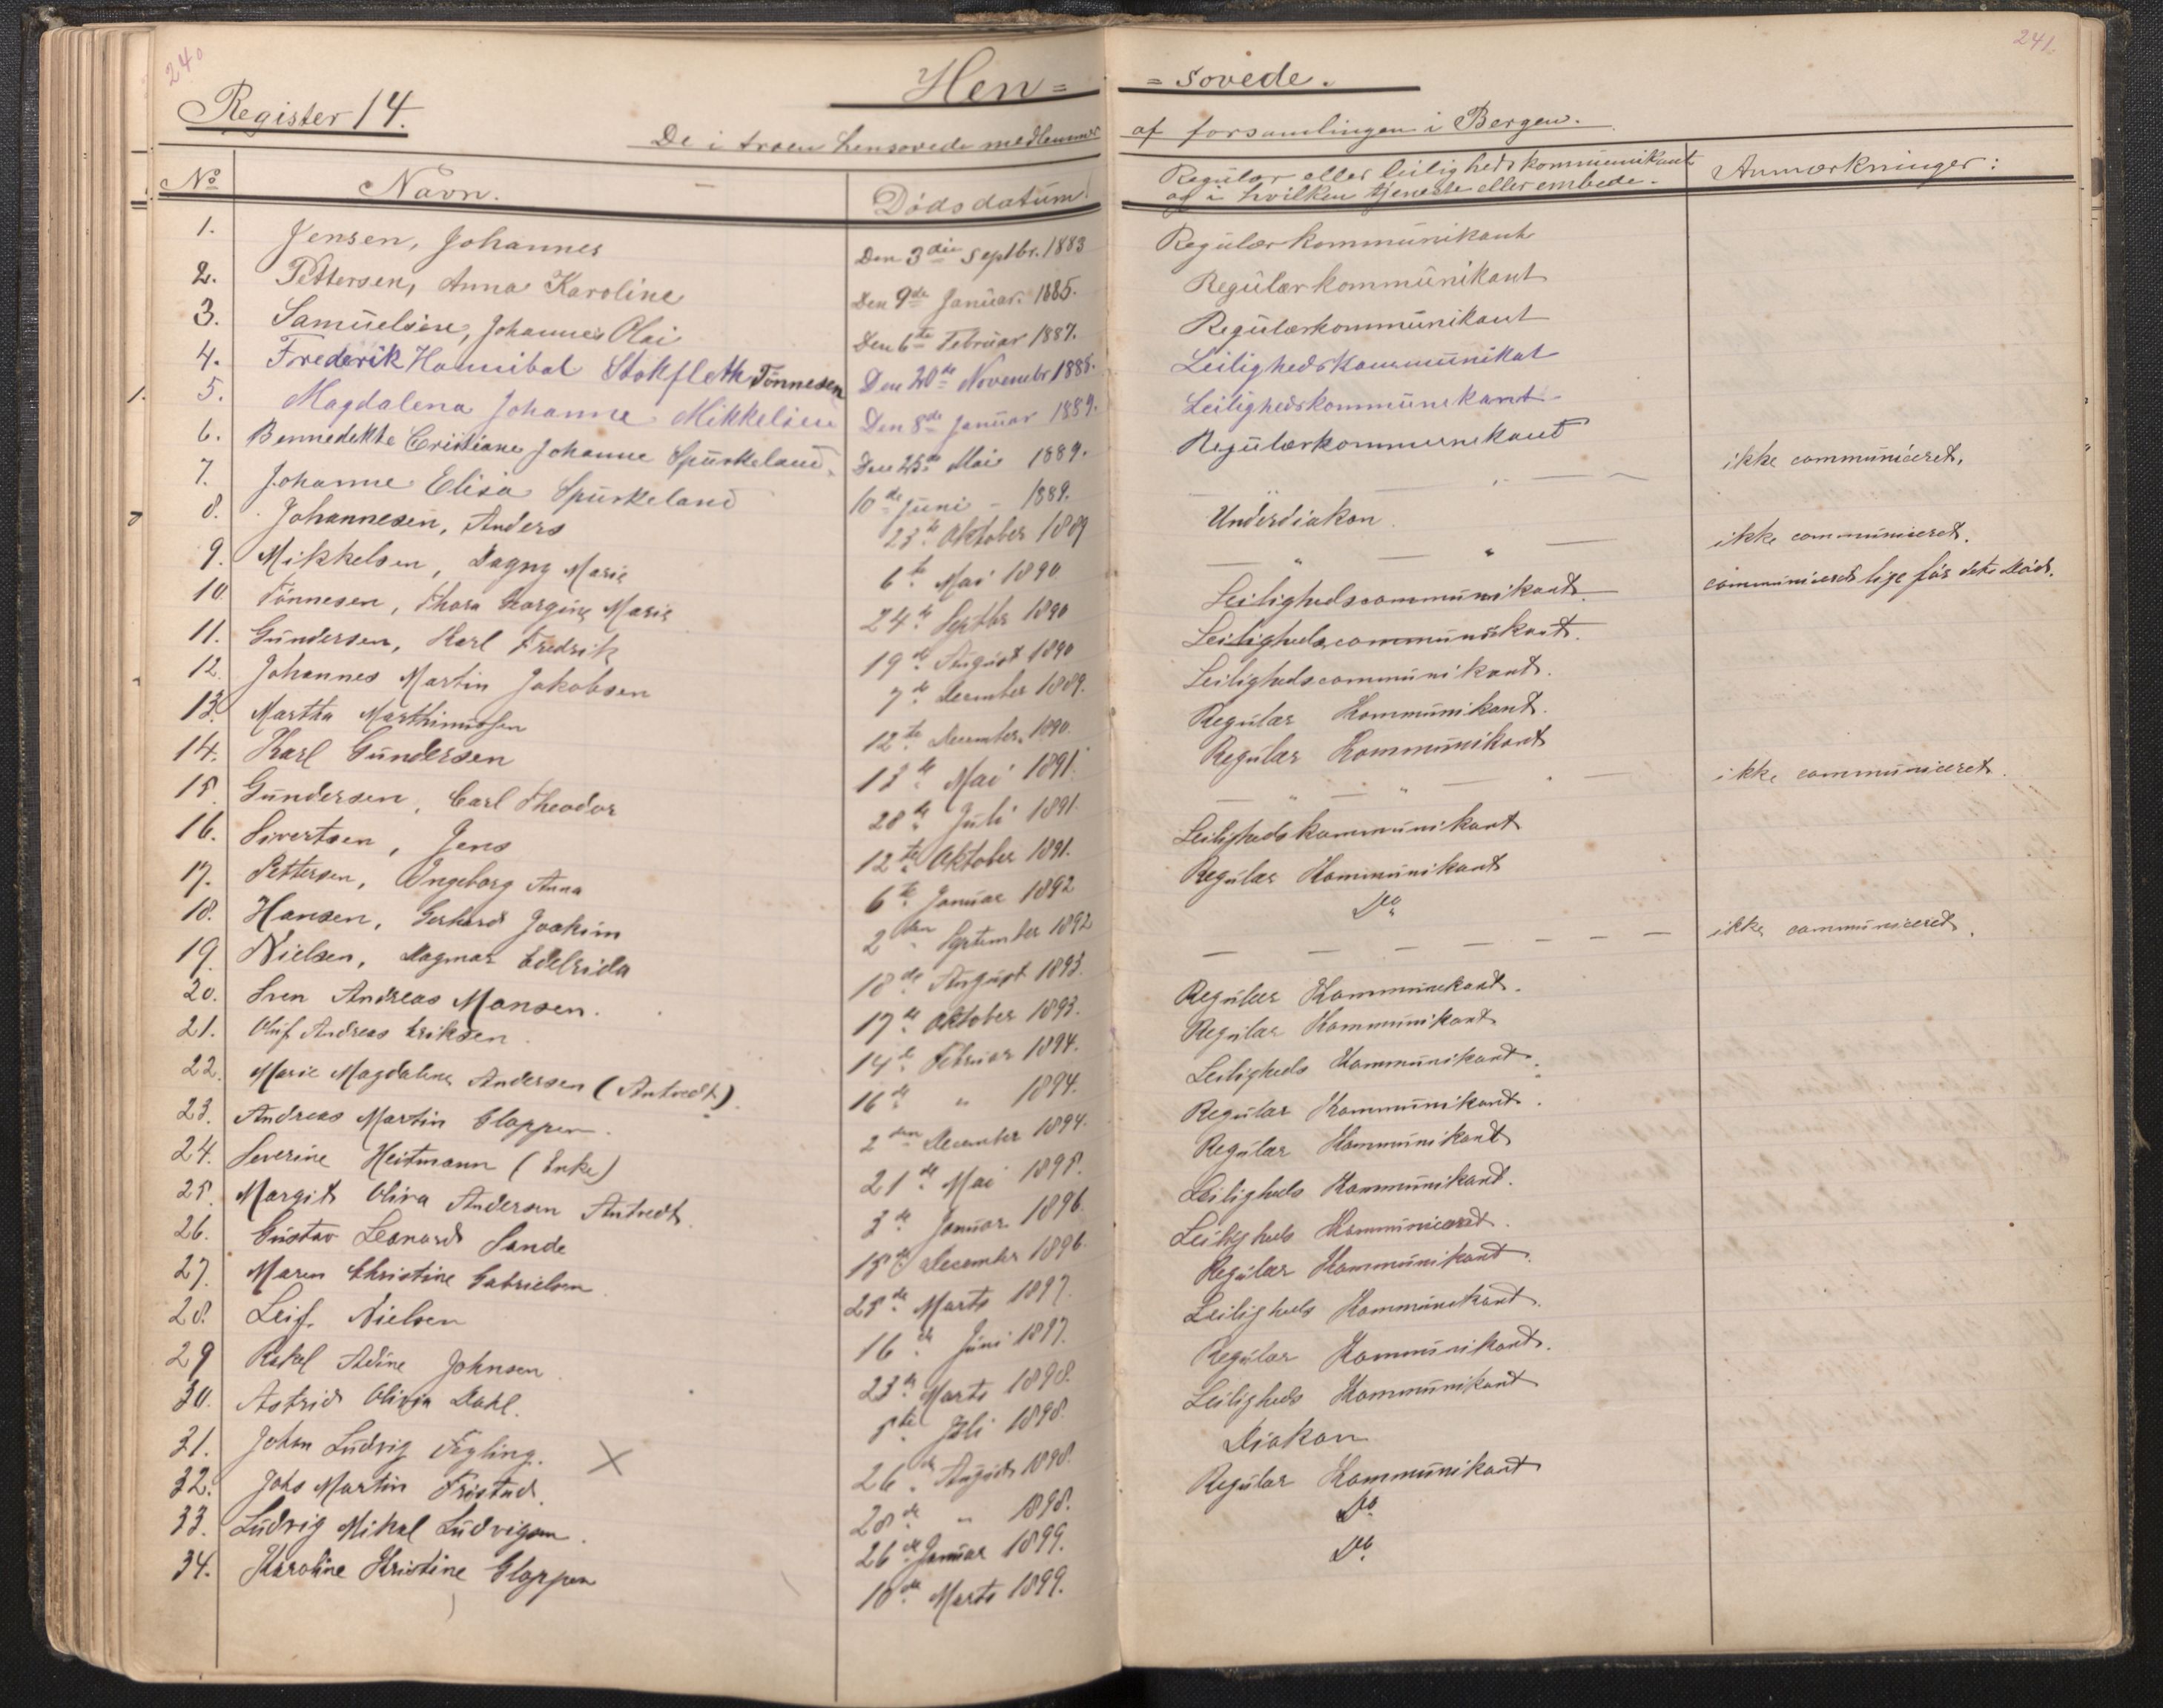 240
241.
Hen= =sovede.
Register 14.
De i troen hensovede medlemmer af forsamlingen i Bergen.
No Navn. Dødsdatum. Regulær eller leilighedskommunikant og i hvilken tjeneste eller embede. Anmærkninger:
1. Jensen, Johannes Den 3die Septbr. 1883 Regulær kommunikant
2. Pettersen, Anna Karoline Den 9de Januar. 1885. Regulær kommunikant
3. Samuelsen, Johannes Olai Den 6te Februar 1887. Regulærkommunikant
4. Frederik Hannibal Stokfleth Tönnesen Den 20de Novembr 1888. Leilighedskommunikat
5. Magdalena Johanne Mikkelsen Den 8de Januar 1889. Leilighedskommunikant
6. Bennedekte Cristiane Johanne Spurkeland. Den 25de Mai 1889. Regulærkommunikant
7. Johanne Elisa Spurkeland 10de Juni - 1889. ikke communiceret.
8. Johannesen, Anders 23de Oktober 1889 Underdiakon
9. Mikkelsen, Dagny Marie 6te Mai 1890 ikke communiceret.
10. Tönnesen, Thora Georgine Marie 24de Septbr 1890 Leilighedscommunikant. communiceret lige før dets Død.
11. Gundersen, Karl Fredrik 19de August 1890 Leilighedscommunikant.
12. Johannes Martin Jakobsen 7de December 1889. Leilighedscommunikant.
13. Martha Marthinussen 12te December. 1890. Regulær Kommunikant.
14. Karl Gundersen 13de Mai 1891. Regulær Kommunikant
15. Gundersen, Carl Theodor 28de Juli 1891. ikke communiceret.
16. Sivertsen, Jens 12te Oktober 1891. Leilighedskommunikant
17. Pettersen, Ingeborg Anna 6te Januar 1892 Regulær Kommunikant
18. Hansen, Gerhard Joakim 2den September 1892 Do
19. Nielsen, Dagmar Edelrida 18de August 1893. ikke communiceret.
20. Sven Andreas Monsen. 17de Oktober 1893. Regulær Kommunikant.
21. Oluf Andreas Eriksen. 14de Februar 1894. Regulær Kommunikant
22. Marie Magdalene Andersen (Antvedt). 16de " 1894. Leiligheds Kommunikant.
23. Andreas Martin Gloppen. 2den December 1894. Regulær Kommunikant.
24. Severine Heitmann (Enke) 21de Mai 1895. Regulær Kommunikant
25. Margit Oliva Andersen Antvedt. 3de Januar 1896. Leiligheds Kommunikant.
26. Gustav Leonard Sande 15de December 1896. Leiligheds Kommuniceret.
27. Maren Christine Gabrielsen. 25de Marts 1897. Regulær Kommunikant.
28. Leif Nielsen 16de Juni 1897. Leiligheds Kommunikant.
29 Rakel Adine Johnsen. 23de Marts 1898. Regulær Kommunikant.
30. Astrid Olivia Dahl. 5te Juli 1898. Leiligheds Kommunikant
31. Johan Ludvig Fegling. X 26de August 1898. Diakon
32. Johs Martin Fristad. 28de " 1898. Regulær Kommunikant
33. Ludvig Mikal Ludvigsen. 26de Januar 1899. Do
34. Karoline Kristine Gloppen 10de Marts 1899. Do